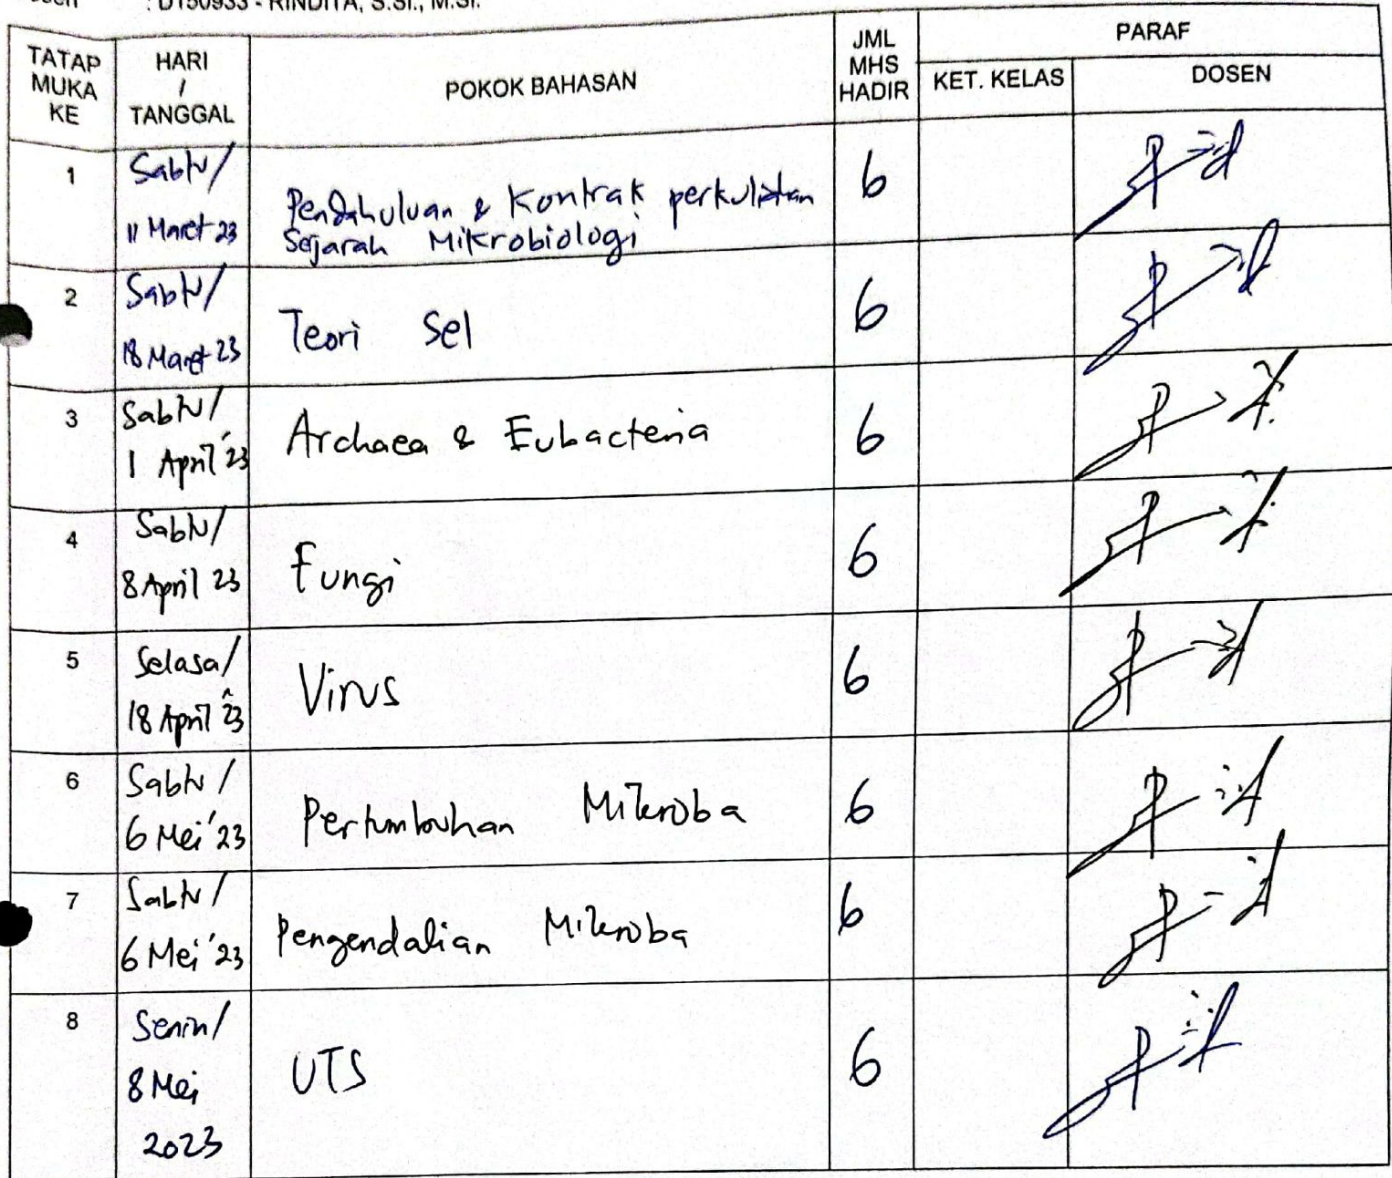 : D150933 - RINDITA, S.Si., M.Si.
TATAP MUKA KE
HARI / TANGGAL
POKOK BAHASAN
JML MHS HADIR
PARAF
KET. KELAS
DOSEN
1
Sabtu/
11 Maret 23
Pendahuluan & Kontrak perkuliahan
Sejarah Mikrobiologi
6
2
Sabtu/
18 Maret 23
Teori Sel
6
3
Sabtu/
1 April '23
Archaea & Eubacteria
6
4
Sabtu/
8 April 23
Fungi
6
5
Selasa/
18 April 23
Virus
6
6
Sabtu/
6 Mei '23
Pertumbuhan Mikroba
6
7
Sabtu/
6 Mei '23
Pengendalian Mikroba
6
8
Senin/
8 Mei
2023
UTS
6